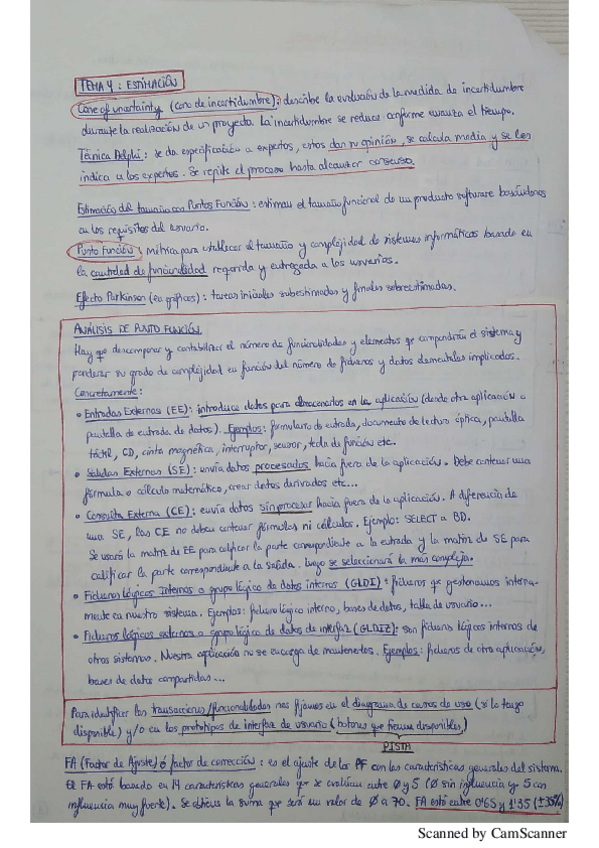 TEMA 4: ESTIMACIÓN
Cone of uncertainty (cono de incertidumbre): describe la evolución de la medida de incertidumbre
durante la realización de un proyecto. La incertidumbre se reduce conforme avanza el tiempo.
Técnica Delphi: se da especificación a expertos, estos dan su opinión, se calcula media y se les
indica a los expertos. Se repite el proceso hasta alcanzar consenso.
Estimación del tamaño con Puntos Función: estiman el tamaño funcional de un producto software basándonos
en los requisitos del usuario.
Punto Función: métrica para establecer el tamaño y complejidad de sistemas informáticos basado en
la cantidad de funcionalidad requerida y entregada a los usuarios.
Efecto Parkinson (en gráficas): tareas iniciales subestimadas y finales sobreestimadas.
ANÁLISIS DE PUNTO FUNCIÓN
Hay que descomponer y contabilizar el número de funcionalidades y elementos q compondrán el sistema y
ponderar su grado de complejidad en función del número de ficheros y datos elementales implicados.
Concretamente:
• Entradas Externas (EE): introduce datos para almacenarlos en la aplicación (desde otra aplicación o
pantalla de entrada de datos). Ejemplos: formulario de entrada, documento de lectura óptica, pantalla
táctil, CD, cinta magnética, interruptor, sensor, tecla de función etc.
• Salidas Externas (SE): envía datos procesados hacia fuera de la aplicación. Debe contener una
fórmula o cálculo matemático, crear datos derivados etc...
• Consulta Externa (CE): envía datos sin procesar hacia fuera de la aplicación. A diferencia de
una SE, las CE no deben contener fórmulas ni cálculos. Ejemplo: SELECT a BD.
Se usará la matriz de EE para calificar la parte correspondiente a la entrada y la matriz de SE para
calificar la parte correspondiente a la salida. Luego se seleccionará la más compleja.
• Ficheros Lógicos Internos o grupo lógico de datos internos (GLDI): ficheros que gestionamos interna-
mente en nuestro sistema. Ejemplos: fichero lógico interno, bases de datos, tabla de usuario...
• Ficheros lógicos externos o grupo lógico de datos de interfaz (GLDIZ): son ficheros lógicos internos de
otros sistemas. Nuestra aplicación no se encarga de mantenerlos. Ejemplos: ficheros de otra aplicación,
bases de datos compartidas...
Para identificar las transacciones/funcionalidades nos fijamos en el diagrama de casos de uso (si lo tengo
disponible) y/o en los prototipos de interfaz de usuario (botones que tienen disponibles)
PISTA
FA (Factor de Ajuste) ó factor de corrección: es el ajuste de los PF con las características generales del sistema.
El FA está basado en 14 características generales que se evalúan entre 0 y 5 (0 sin influencia y 5 con
influencia muy fuerte). Se obtiene la suma que será un valor de 0 a 70. FA está entre 0'65 y 1'35 (±35%)
Scanned by CamScanner